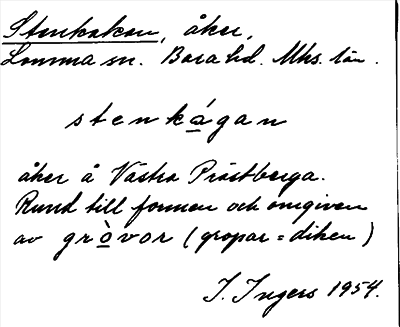 Stenkakan, åker,
Lomma sn. Bara hd. Mhs. län.
stenkágan
åker å Västra Prästberga.
Rund till formen och omgiven
av gròvor (gropar = diken)
I. Ingers 1954.